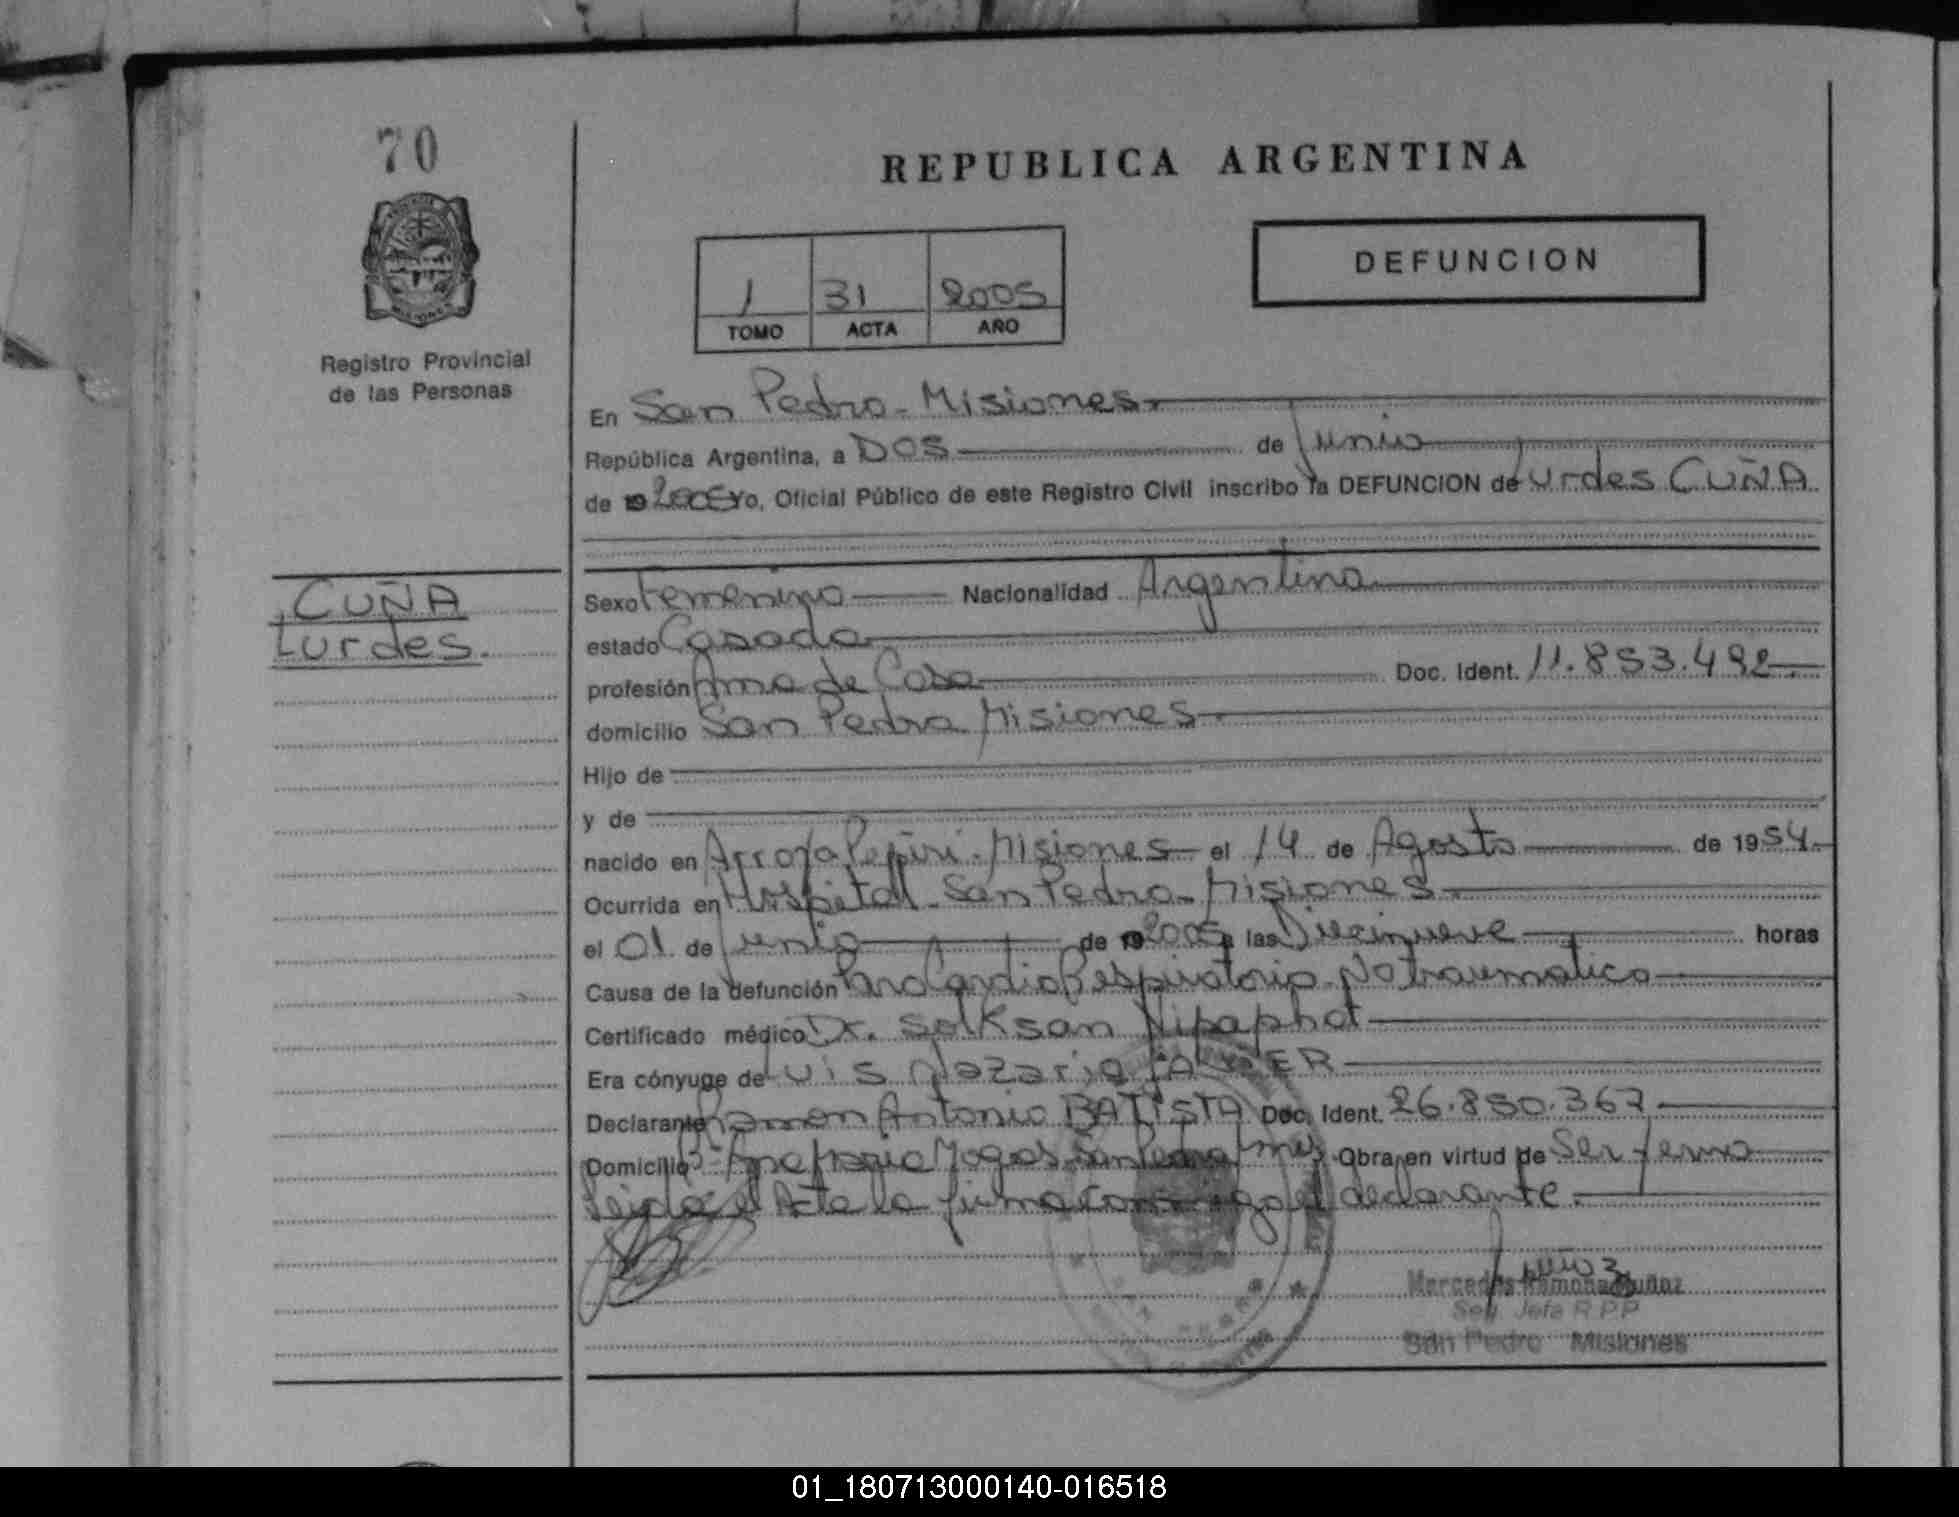 70
REPUBLICA ARGENTINA
DEFUNCION
1 31 2005
TOMO ACTA AÑO
Registro Provincial
de las Personas
En San Pedro - Misiones.
República Argentina, a DOS de Junio
de 19 2005 Yo, Oficial Público de este Registro Civil inscribo la DEFUNCION de Lurdes CUÑA
CUÑA
Lurdes.
Sexo Femenino Nacionalidad Argentina
estado Casada
profesión Ama de Casa Doc. Ident. 11.853.492.
domicilio San Pedro Misiones
Hijo de
y de
nacido en Arroyo Pepiri - Misiones el 14 de Agosto de 1954.
Ocurrida en Hospital - San Pedro - Misiones
el 01 de Junio de 19 2005 a las Diecinueve horas
Causa de la defunción Paro Cardio Respiratorio - No traumatico
Certificado médico Dr. Solksan
Era cónyuge de Luis
Declarante Ramon Antonio BATISTA Doc. Ident. 26.850.367
Domicilio San Pedro Mnes Obra en virtud de Ser Yerno
Leida el Acta la firma conmigo el declarante.
Mercedes Ramona Muñoz
Jefa R.P.P
San Pedro Misiones
01_180713000140-016518